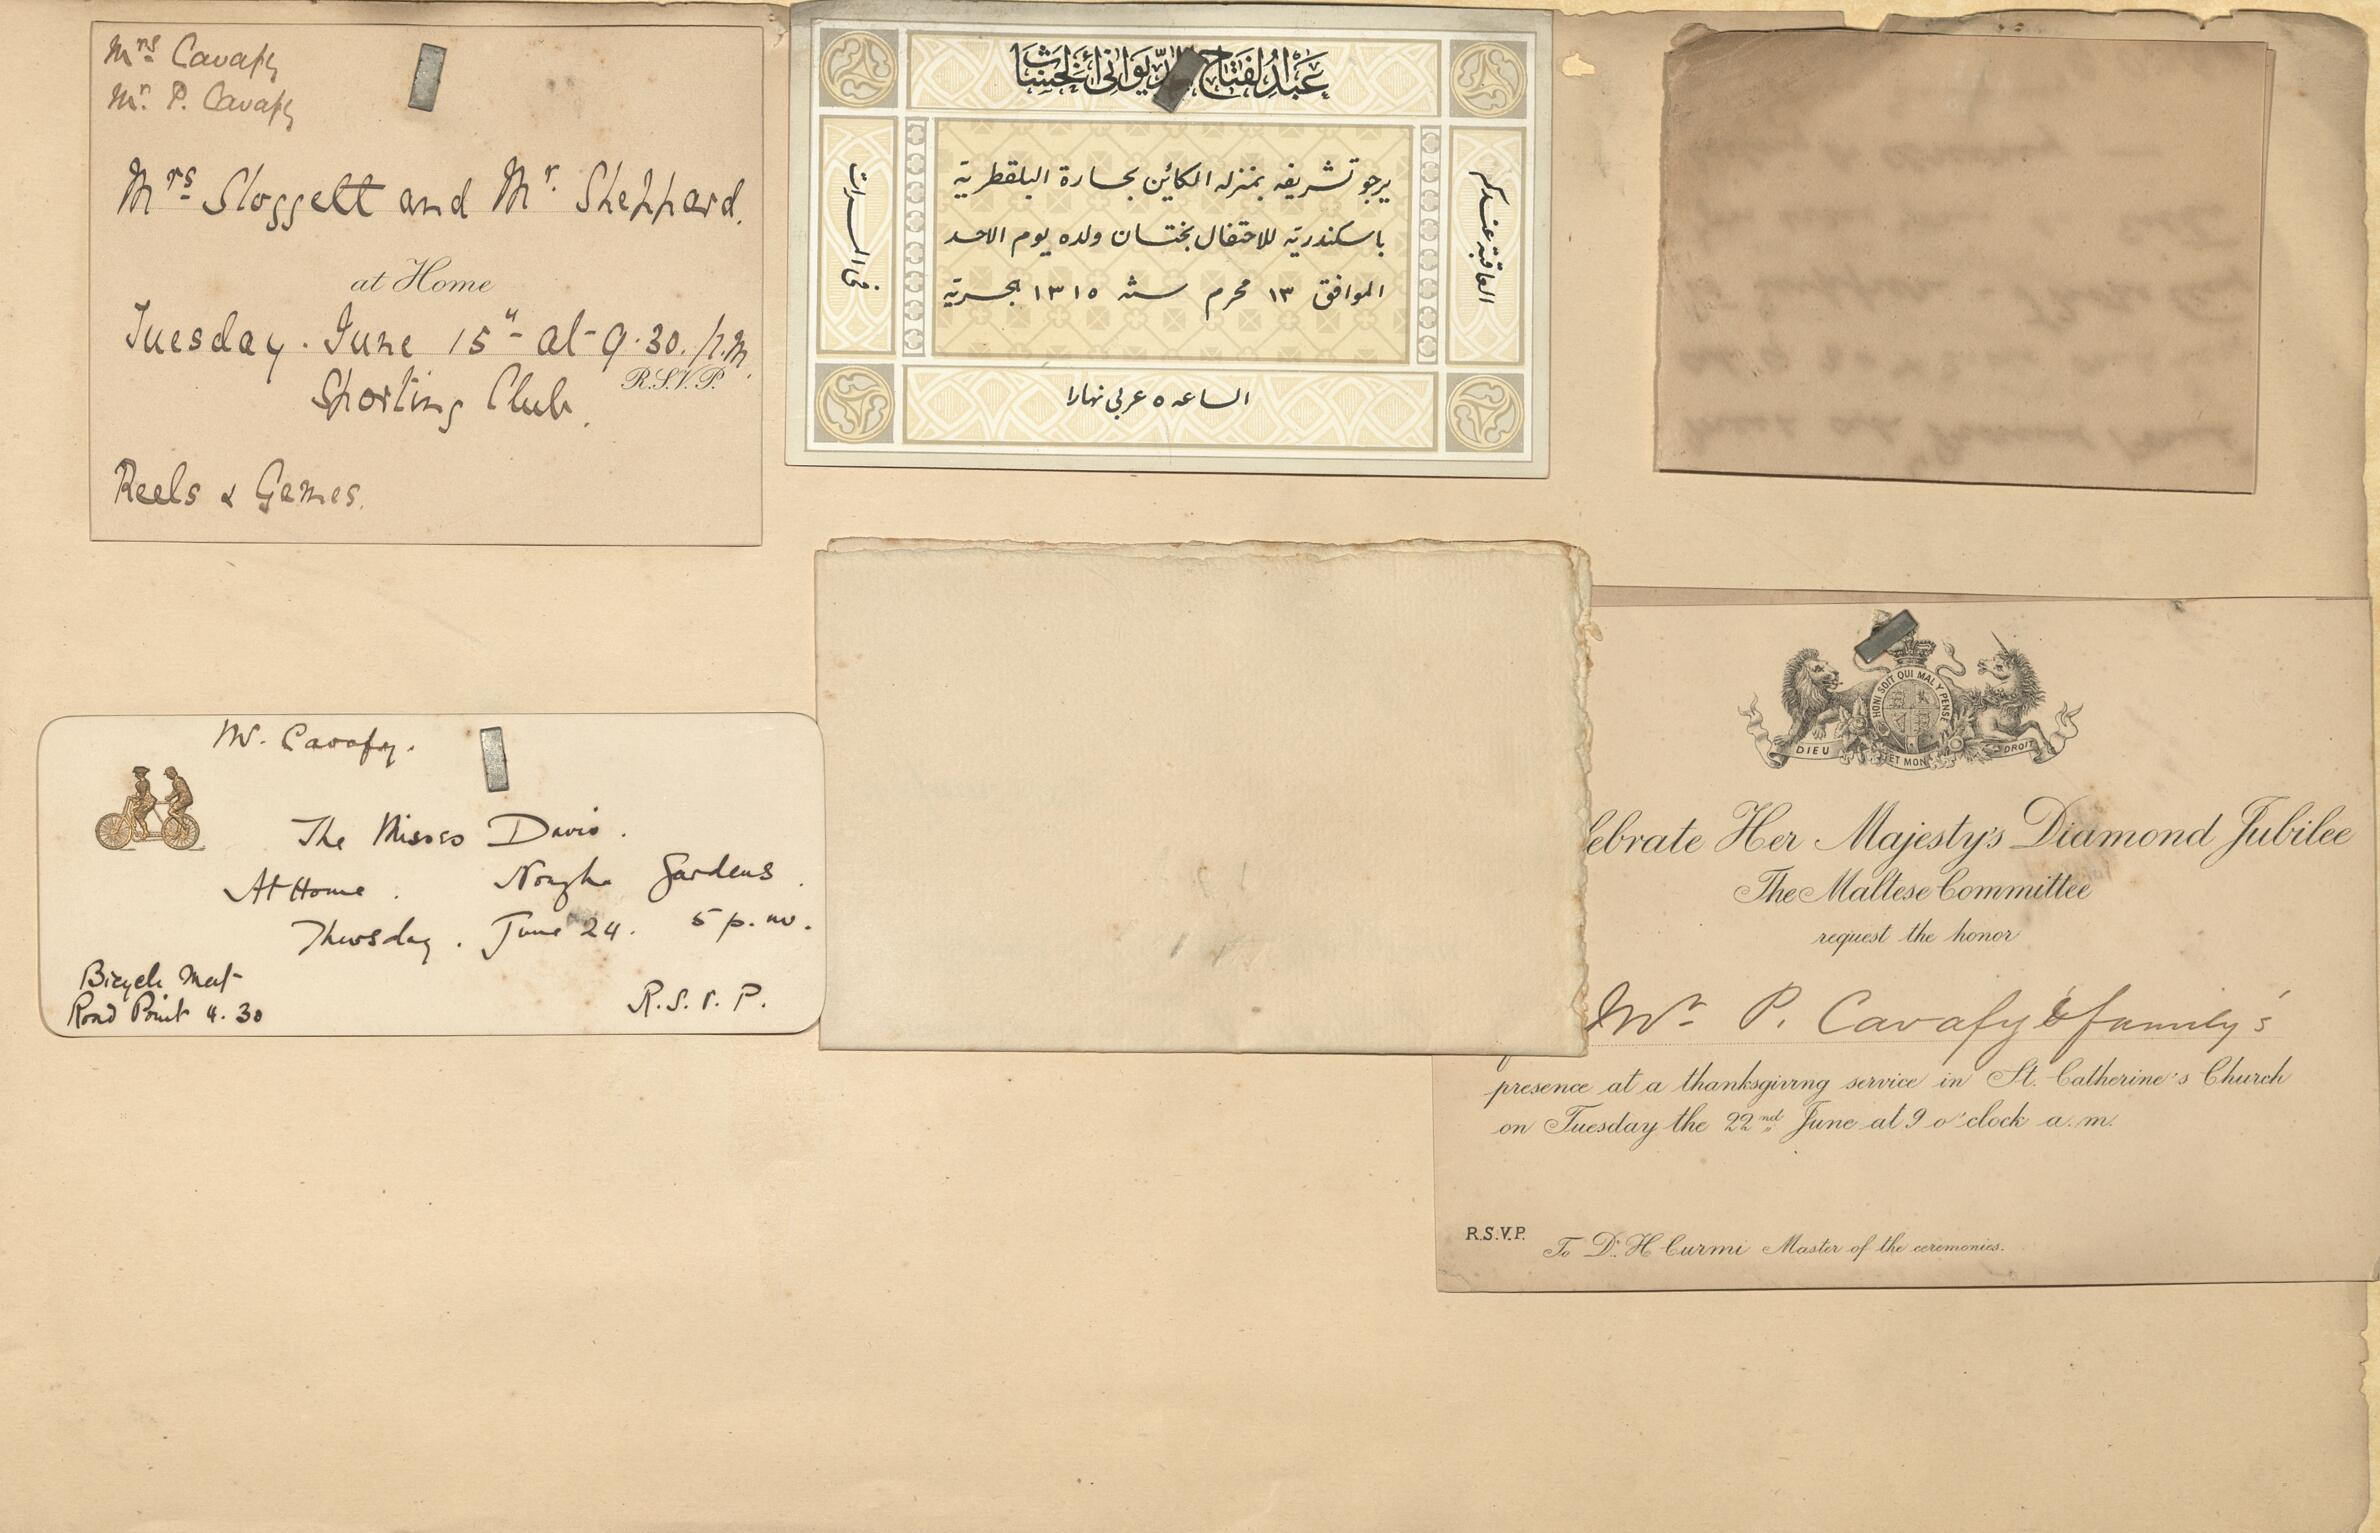 Mrs Cavafy
Mr. P. Cavafy
Mrs Sloggett and Mr. Sheppard.
at Home
Tuesday. June 15" at 9.30. p.m.
R.S.V.P.
Sporting Club.
Reels & Games.
عبد الفتاح الديواني الخشاب
يرجو تشريفه بمنزله الكائن بحارة البلقطرية
باسكندرية للاحتفال بختان ولده يوم الاحد
الموافق ١٣ محرم سنة ١٣١٥ هجرية
العاقبة عندكم
في المسرات
الساعه ٥ عربي نهارا
Mr. Cavafy.
The Misses Davis.
At Home. Nouzha Gardens.
Thursday. June 24. 5 p.m.
Bicycle Meet
Rond Point 4.30
R.S.V.P.
HONI SOIT QUI MAL Y PENSE
DIEU ET MON DROIT
lebrate Her Majesty's Diamond Jubilee
The Maltese Committee
request the honor
Mr P. Cavafy & family's
presence at a thanksgiving service in St. Catherine's Church
on Tuesday the 22nd June at 9 o'clock a.m.
R.S.V.P.
To Dr. H. Curmi Master of the ceremonies.